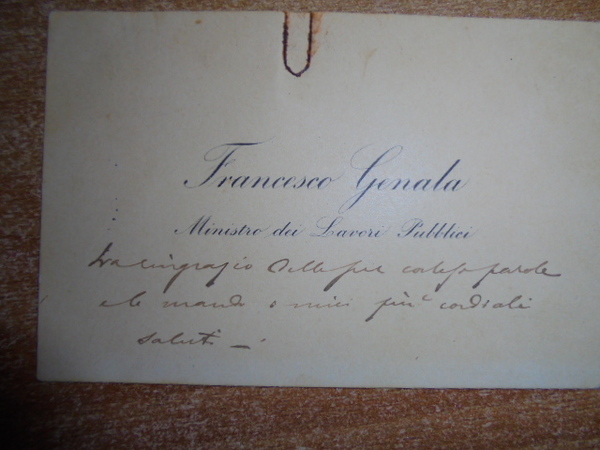 Francesco Genala
Ministro dei Lavori Pubblici
La ringrazio delle sue cortesi parole
e le mando i miei più cordiali
saluti —